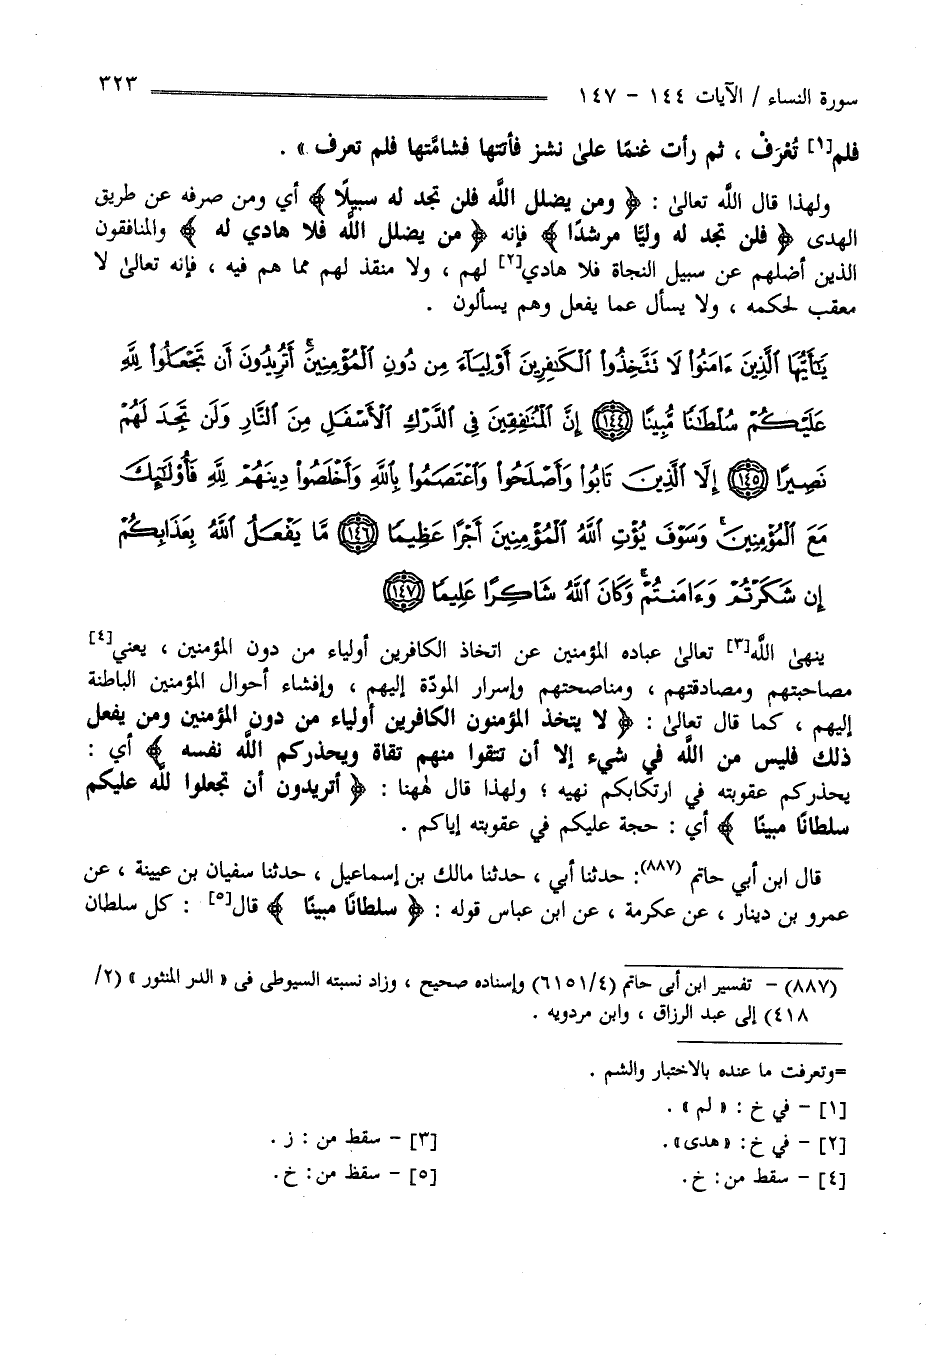 سورة النساء / الآيات ١٤٤ - ١٤٧ ٣٢٣
فلم[١] تُعْرَفْ ، ثم رأت غنمًا علىٰ نشز فأتتها فشامَّتها فلم تعرف » .
ولهذا قال اللَّه تعالىٰ : ﴿ ومن يضلل اللَّه فلن تجد له سبيلًا ﴾ أي ومن صرفه عن طريق
الهدى ﴿ فلن تجد له وليًّا مرشدًا ﴾ فإنه ﴿ من يضلل اللَّه فلا هادي له ﴾ والمنافقون
الذين أضلهم عن سبيل النجاة فلا هادي[٢] لهم ، ولا منقذ لهم مما هم فيه ، فإنه تعالىٰ لا
معقب لحكمه ، ولا يسأل عما يفعل وهم يسألون .
يَٰٓأَيُّهَا ٱلَّذِينَ ءَامَنُوا۟ لَا تَتَّخِذُوا۟ ٱلْكَٰفِرِينَ أَوْلِيَآءَ مِن دُونِ ٱلْمُؤْمِنِينَ ۚ أَتُرِيدُونَ أَن تَجْعَلُوا۟ لِلَّهِ
عَلَيْكُمْ سُلْطَٰنًا مُّبِينًا ﴿١٤٤﴾ إِنَّ ٱلْمُنَٰفِقِينَ فِى ٱلدَّرْكِ ٱلْأَسْفَلِ مِنَ ٱلنَّارِ وَلَن تَجِدَ لَهُمْ
نَصِيرًا ﴿١٤٥﴾ إِلَّا ٱلَّذِينَ تَابُوا۟ وَأَصْلَحُوا۟ وَٱعْتَصَمُوا۟ بِٱللَّهِ وَأَخْلَصُوا۟ دِينَهُمْ لِلَّهِ فَأُو۟لَٰٓئِكَ
مَعَ ٱلْمُؤْمِنِينَ ۖ وَسَوْفَ يُؤْتِ ٱللَّهُ ٱلْمُؤْمِنِينَ أَجْرًا عَظِيمًا ﴿١٤٦﴾ مَّا يَفْعَلُ ٱللَّهُ بِعَذَابِكُمْ
إِن شَكَرْتُمْ وَءَامَنتُمْ ۚ وَكَانَ ٱللَّهُ شَاكِرًا عَلِيمًا ﴿١٤٧﴾
ينهىٰ اللَّه[٣] تعالىٰ عباده المؤمنين عن اتخاذ الكافرين أولياء من دون المؤمنين ، يعني[٤]
مصاحبتهم ومصادقتهم ، ومناصحتهم وإسرار المودّة إليهم ، وإفشاء أحوال المؤمنين الباطنة
إليهم ، كما قال تعالىٰ : ﴿ لا يتخذ المؤمنون الكافرين أولياء من دون المؤمنين ومن يفعل
ذلك فليس من اللَّه في شيء إلا أن تتقوا منهم تقاة ويحذركم اللَّه نفسه ﴾ أي :
يحذركم عقوبته في ارتكابكم نهيه ؛ ولهذا قال لههنا : ﴿ أتريدون أن تجعلوا للَّه عليكم
سلطانًا مبينًا ﴾ أي : حجة عليكم في عقوبته إياكم .
قال ابن أبي حاتم (٨٨٧): حدثنا أبي ، حدثنا مالك بن إسماعيل ، حدثنا سفيان بن عيينة ، عن
عمرو بن دينار ، عن عكرمة ، عن ابن عباس قوله : ﴿ سلطانًا مبينًا ﴾ قال[٥] : كل سلطان
(٨٨٧) - تفسير ابن أبى حاتم (٦١٥١/٤) وإسناده صحيح ، وزاد نسبته السيوطى فى « الدر المنثور » (٢/
٤١٨) إلى عبد الرزاق ، وابن مردويه .
=وتعرفت ما عنده بالاختبار والشم .
[١] - في خ : « لم » .
[٢] - في خ : «هدى». [٣] - سقط من : ز .
[٤] - سقط من: خ. [٥] - سقظ من: خ.